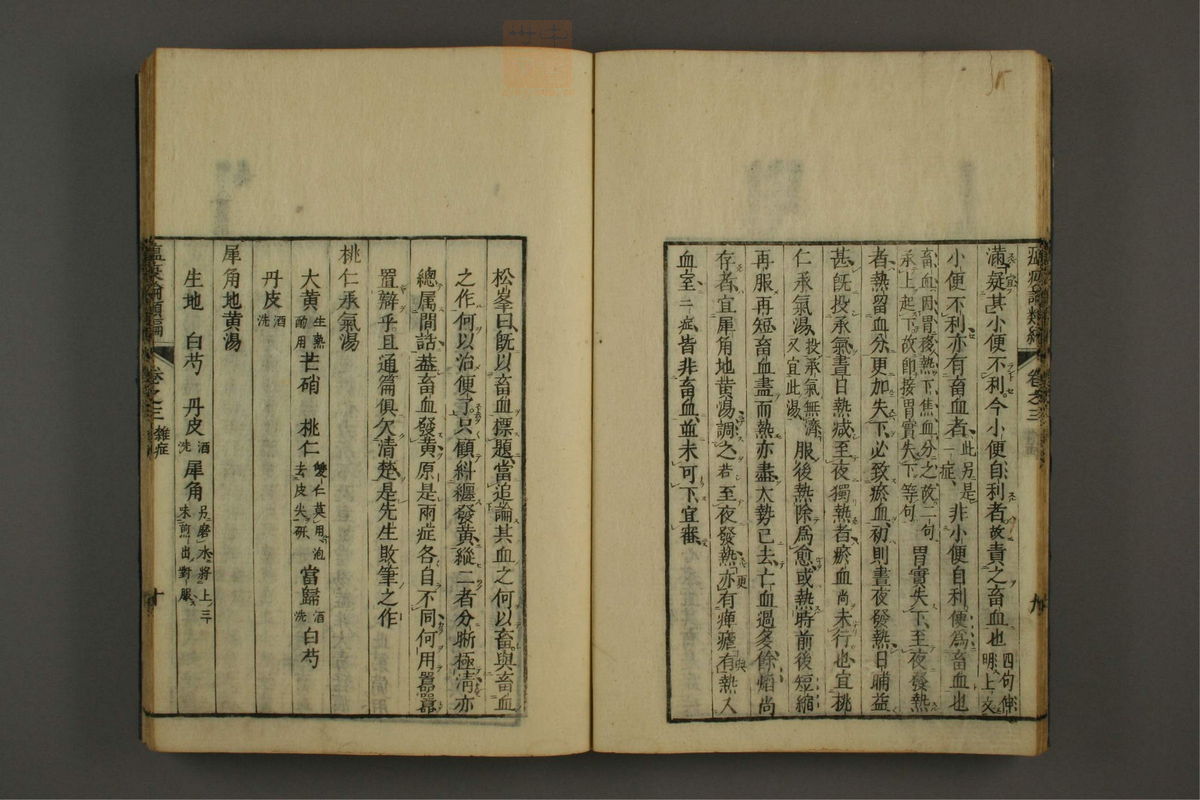 瘟疫論類編 卷之三 雜症 九
滿疑其小便不利今小便自利者故責之畜血也 四句伸明上文
小便不利亦有畜血者 此另是一症 非小便自利便為畜血也
畜血因胃移熱下焦血分之故二句承上起下故即接胃實失下等句 胃實失下至夜發熱
者熱留血分更加失下必致瘀血初則晝夜發熱日晡益
甚既投承氣晝日熱減至夜獨熱者瘀血尚未行也宜桃
仁承氣湯 投承氣無濟又宜此湯 服後熱除為愈或熱時前後短縮
再服再短畜血盡而熱亦盡大勢已去亡血過多餘焰尚
存者宜犀角地黃湯調之若至夜發熱亦更有癉瘧有熱入
血室二症皆非畜血並未可下宜審
松峯曰既以畜血標題當追論其血之何以畜與畜血
之作何以治便了只顧糾纏發黃縱二者分晰極清亦
總属間話葢畜血發黃原是兩症各自不同何用囂囂
置辯乎且通篇俱欠清楚是先生敗筆之作
桃仁承氣湯
大黃 生熟酌用 芒硝 桃仁 雙仁莫用泡去皮尖研 當歸 酒洗 白芍
丹皮 酒洗
犀角地黃湯
生地 白芍 丹皮 酒洗 犀角 另磨水將上三味煎出對服
瘟疫論類編 卷之三 雜症 十